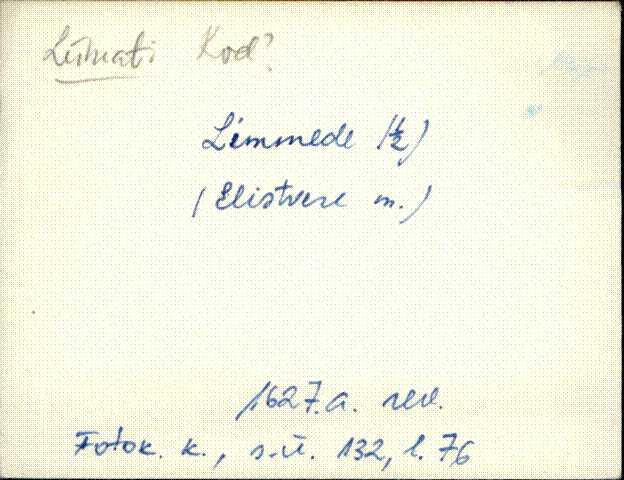 Lümati Kod?
Lemmede (½)
(Elistvere m.)
1627.a. rev.
Fotok. k., s.ü. 132, l. 76